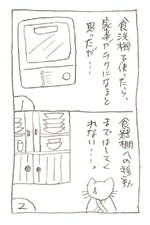 食洗機を使ったら、
家事がラクになると
思ったが…
1
食器棚への移動
まではしてく
れない…。
2